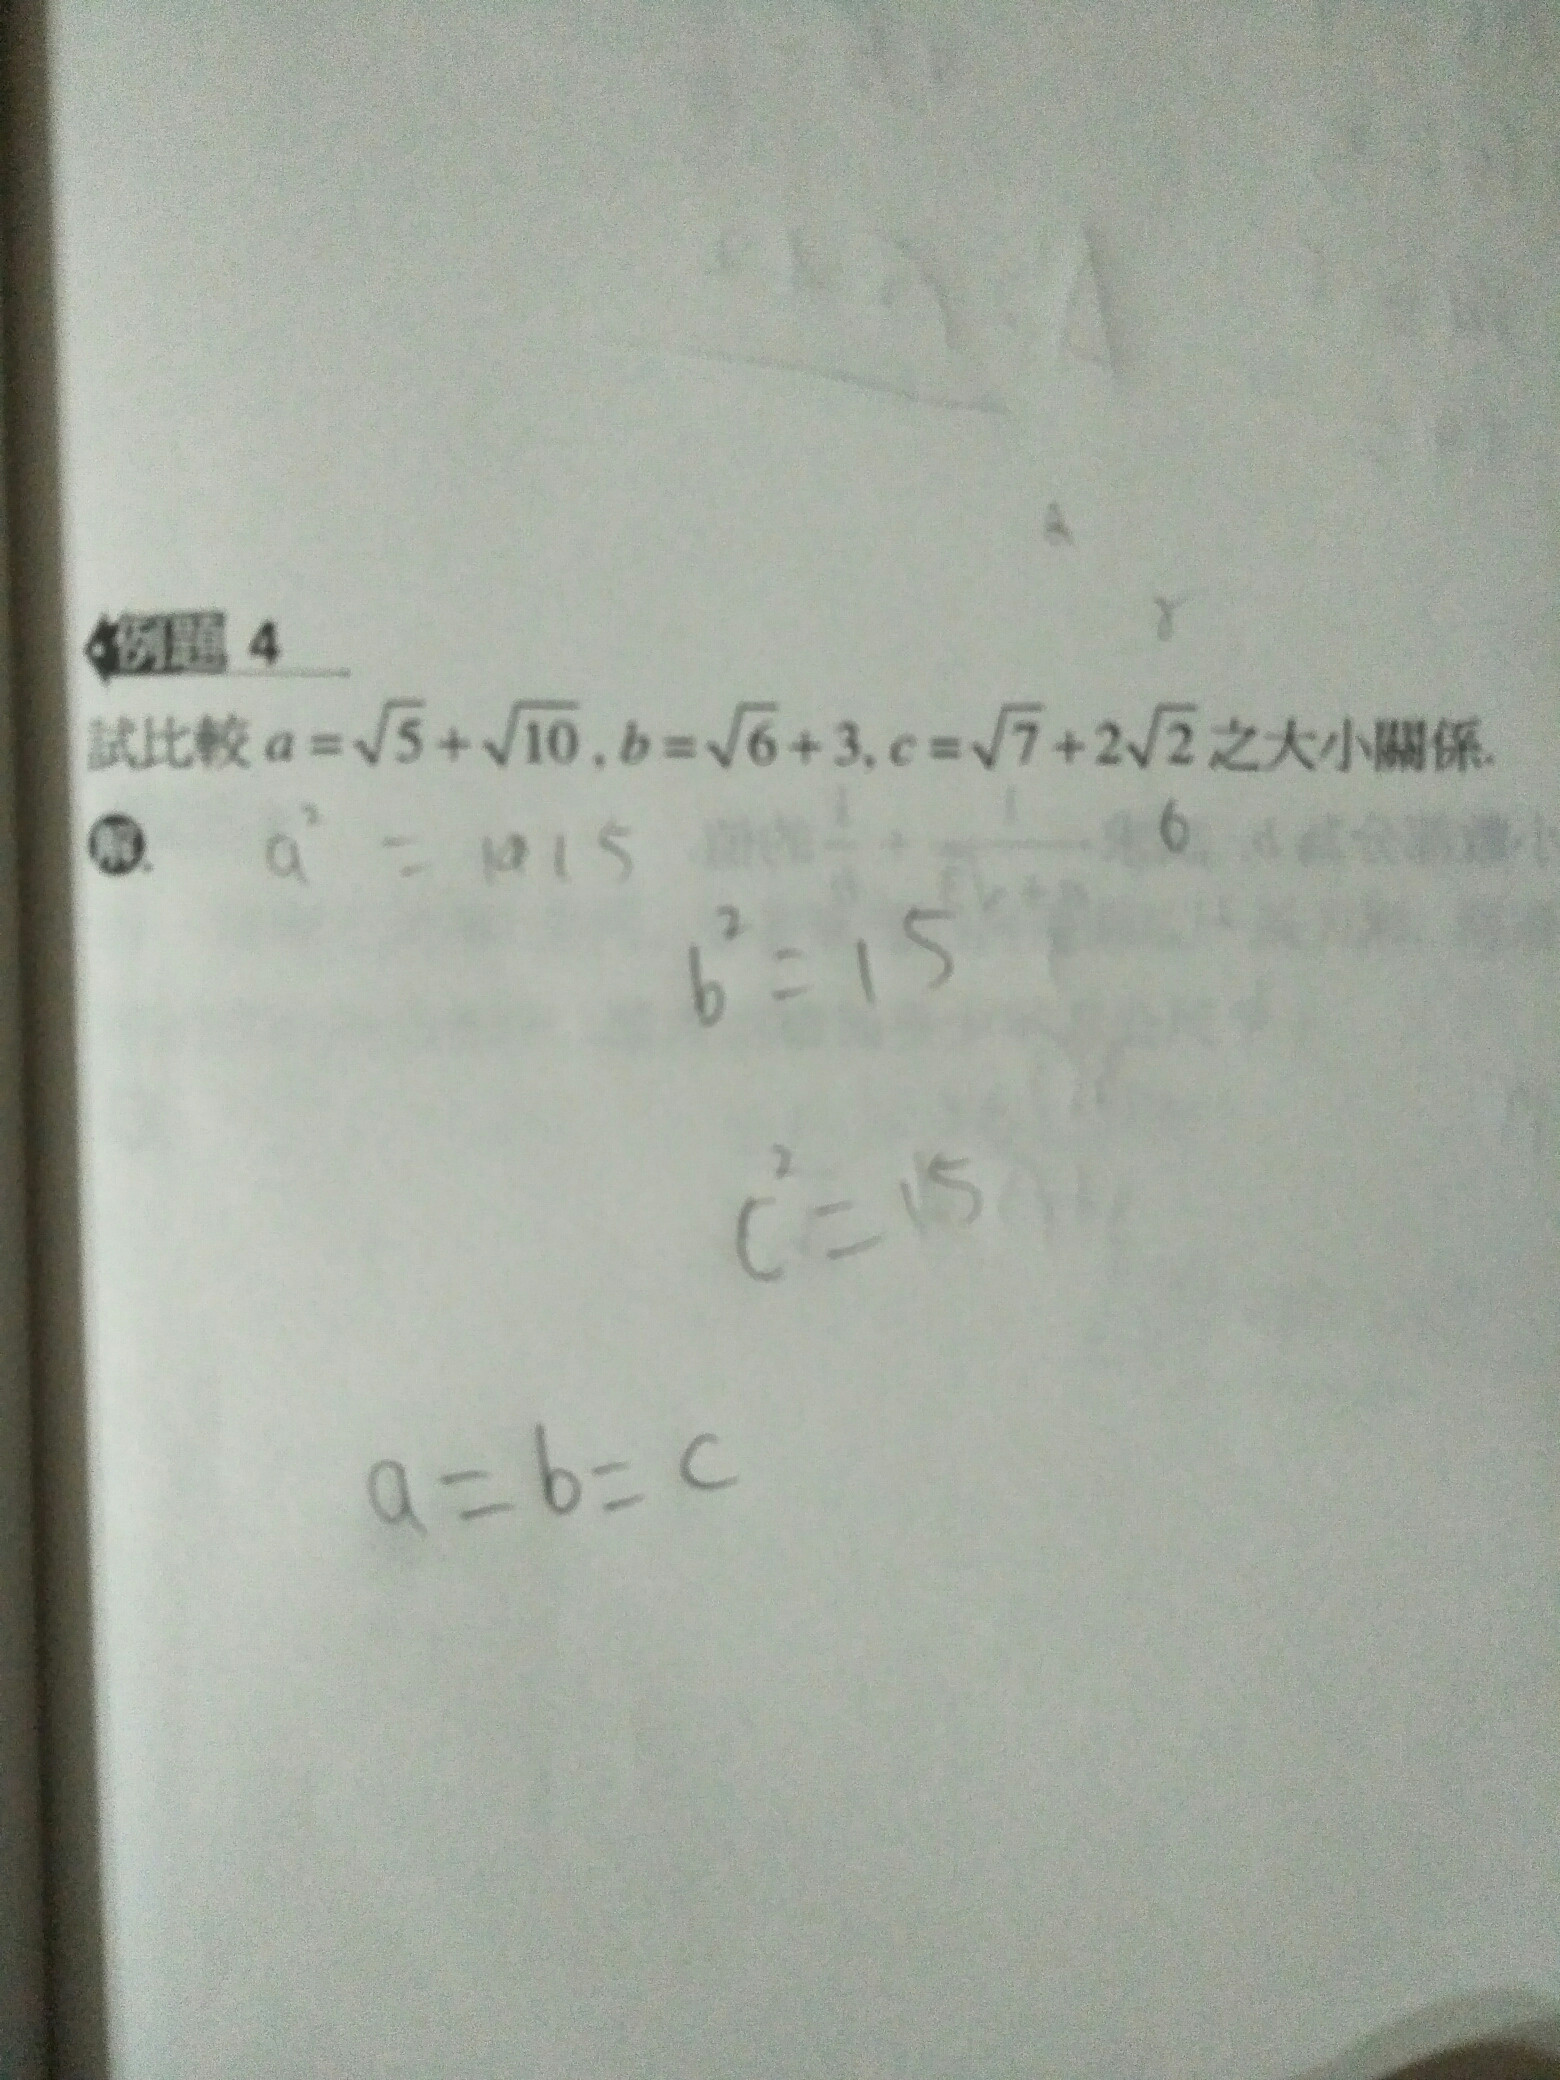 例題 4
試比較 a = √5 + √10, b = √6 + 3, c = √7 + 2√2 之大小關係.
解.
a² = 15
6
b² = 15
c² = 15
a = b = c